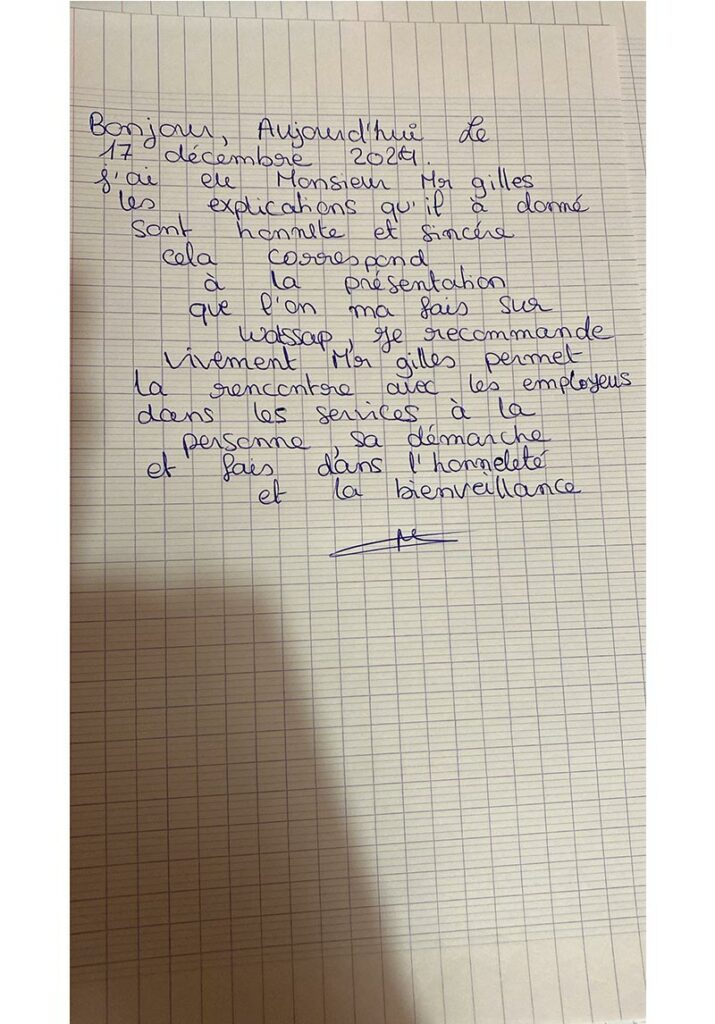 Bonjour, Aujourd'hui Le
17 décembre 2024.
j'ai eu Monsieur Mr gilles
les explications qu'il à donné
sont honnete et sincére
cela correspond
à la présentation
que l'on ma fais sur
watssap, je recommande
vivement Mr gilles permet
la rencontre avec les employeus
dans les services à la
personne, sa démarche
et fais dans l'honneleté
et la bienveillance